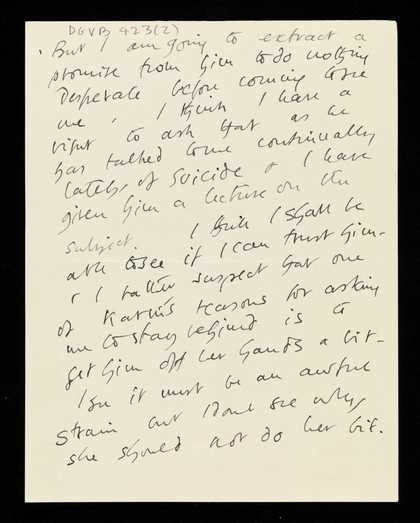 DGVB 423(2)
But I am going to extract a
promise from him to do nothing
Desperate before coming to see
me, I think I have a
right to ask that as he
has talked to me continually
lately of suicide & I have
given him a lecture on the
subject. I think I shall be
able to see if I can trust him.
& I rather suspect that one
of Karin's reasons for asking
me to stay behind is to
get him off her hands a bit.
I see it must be an awful
strain but I dont see why
she should not do her bit.